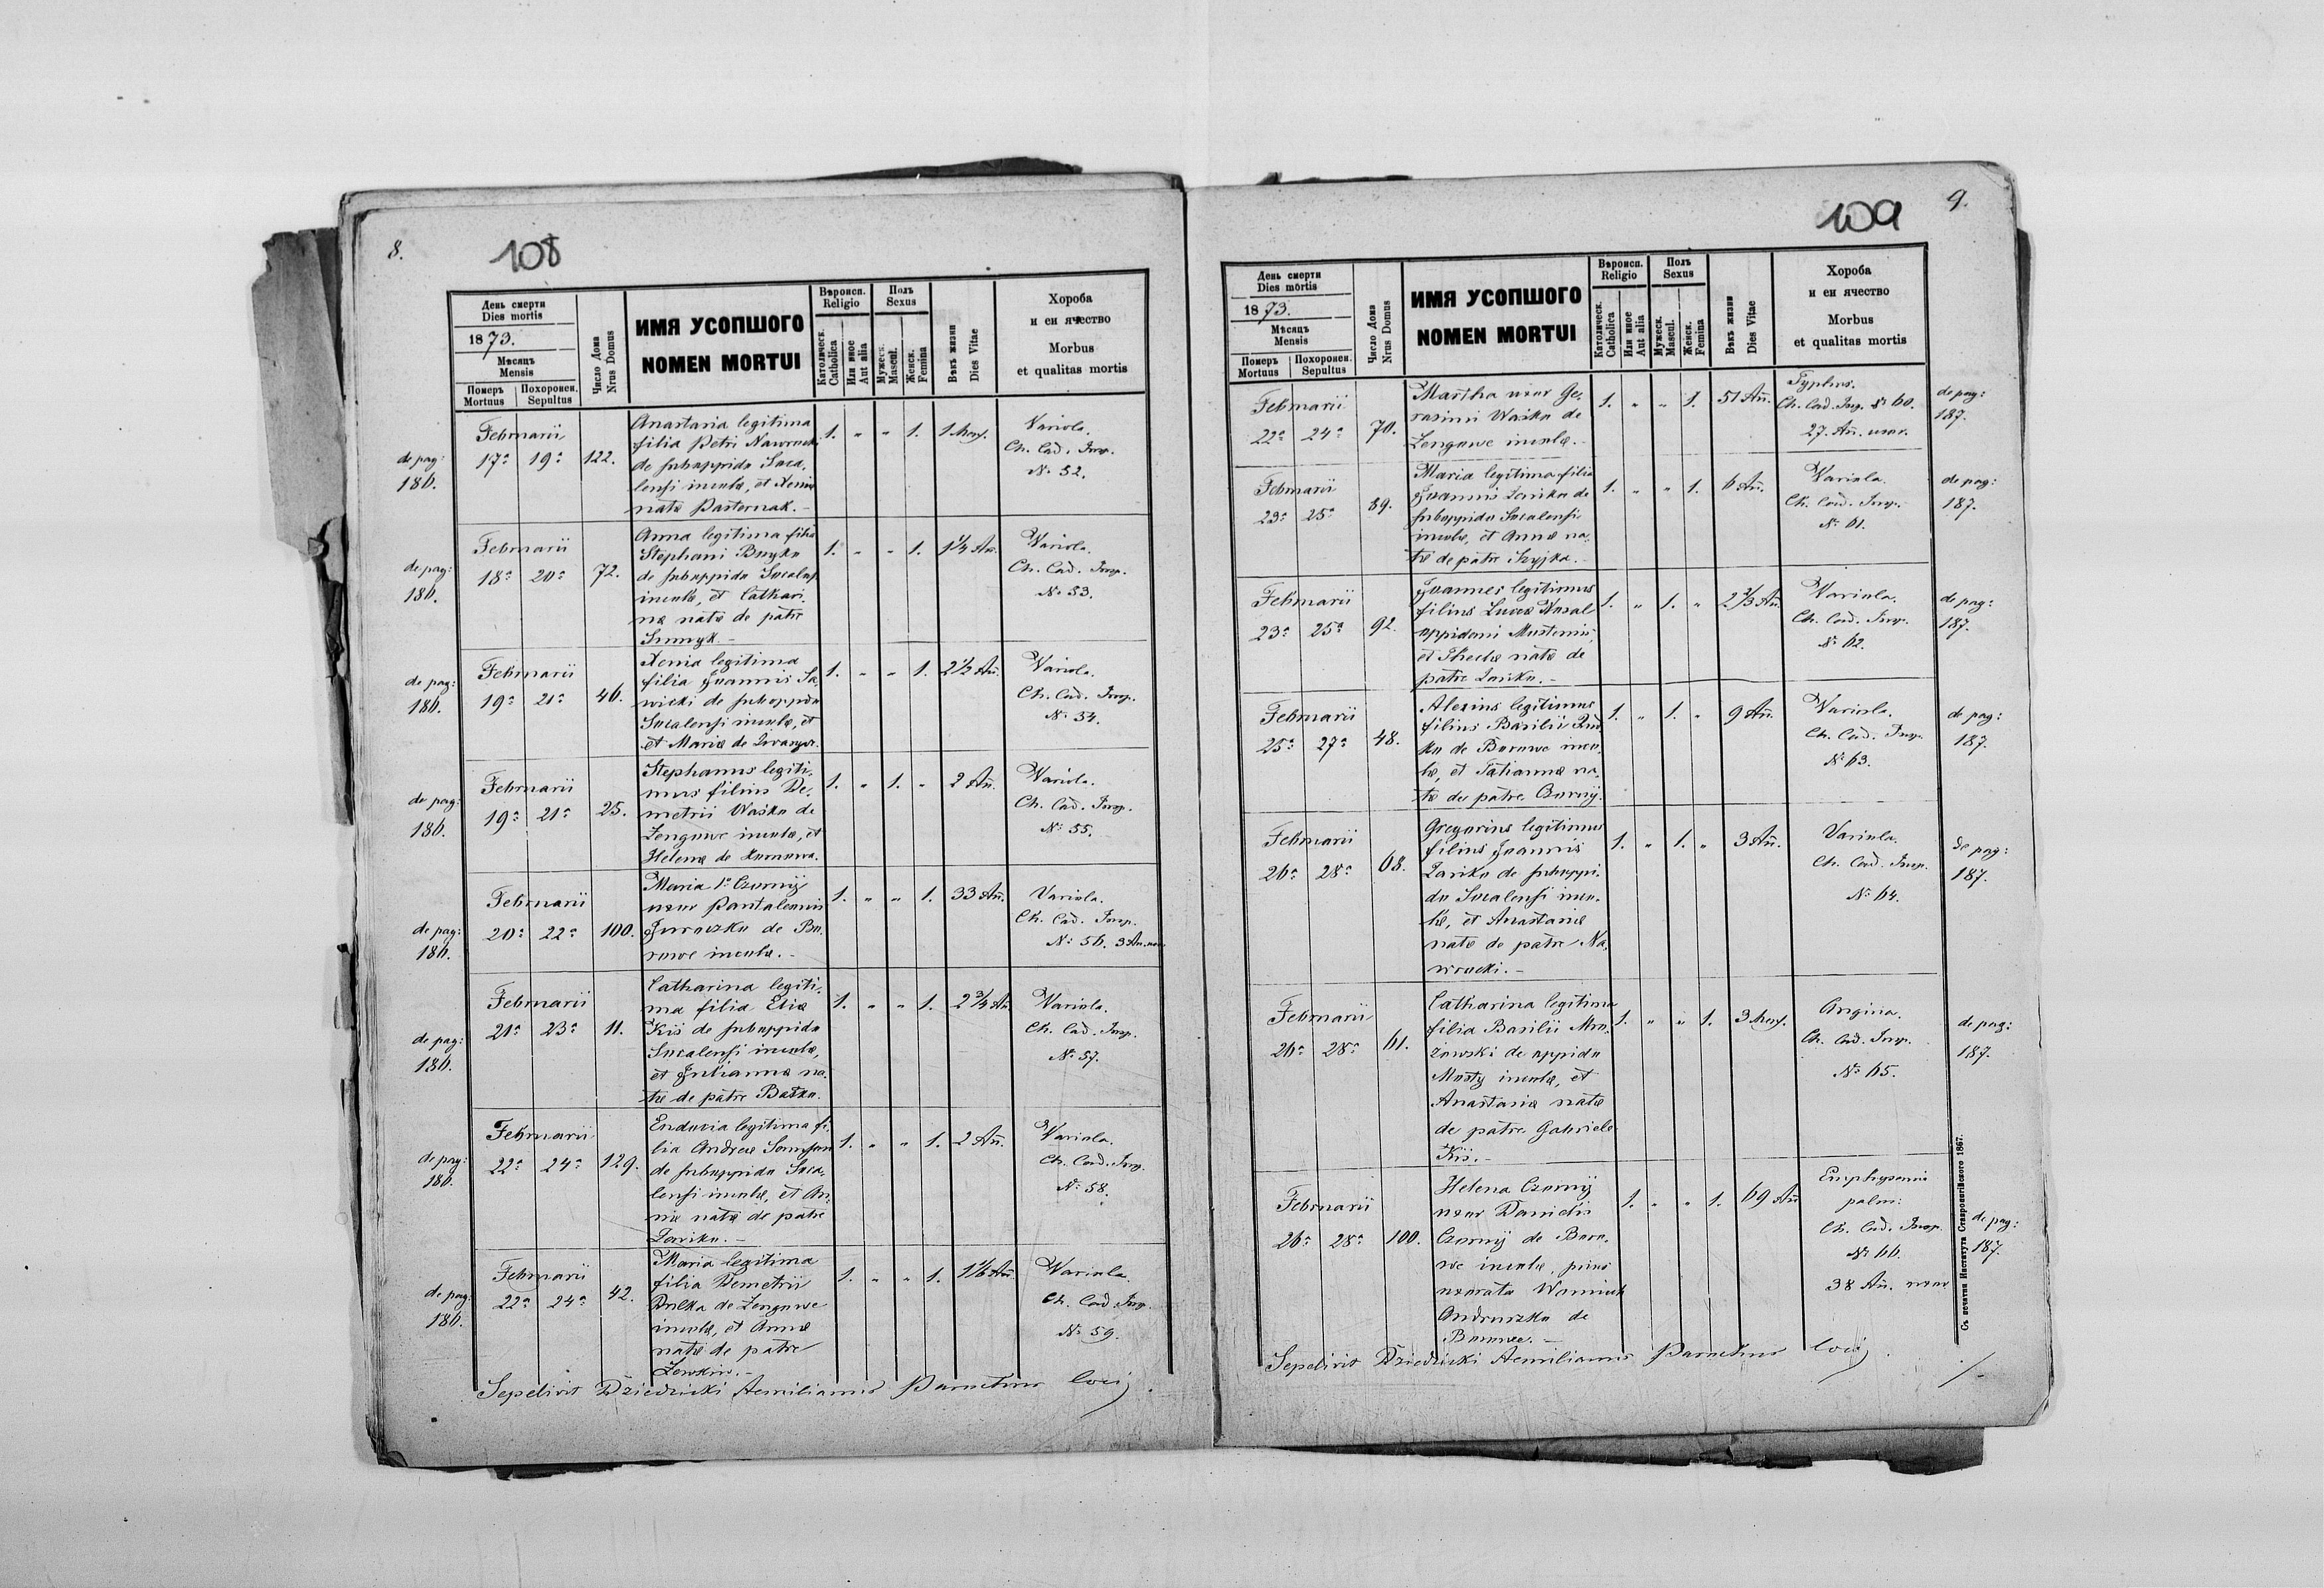 8.
108
День смерти
Dies mortis
1873.
Мѣсяцъ
Mensis
Померъ
Mortuus
Похоронен.
Sepultus
Число Дома
Nrus Domus
ИМЯ УСОПШОГО
NOMEN MORTUI
Вѣроисп.
Religio
Католическ.
Catholica
Или иное
Aut alia
Полъ
Sexus
Мужеск.
Mascul.
Женск.
Femina
Вѣкъ жизни
Dies Vitae
Хороба
и еи ячество
Morbus
et qualitas mortis
de pag: 186.
Februarii 17a 19a 122.
Anastasia legitima
filia Petri Nawrocki
de suboppido Soca,
lensi incolæ, et Xeniæ
natæ Pasternak. -
1. " " 1. 1 Mens.
Variola.
Ch. Cad. Insp.
No 52.
de pag: 186.
Februarii 18a 20a 72.
Anna legitima filia
Stephani Buyko
de suboppido Socalens
incolæ, et Cathari,
næ natæ de patre
1. " " 1. 1 1/4 An.
Variola.
Ch. Cad. Insp.
No 53.
de pag: 186.
Februarii 19a 21a 46.
Xenia legitima
filia Joannis Sa
wicki de suboppido
Socalensi incolæ, et
et Mariæ de
1. " " 1. 2 1/2 Añ.
Variola.
Ch. Cad. Insp.
No 54.
de pag: 186.
Februarii 19a 21a 25.
Stephanus legiti,
mus filius De,
metrii Waśko de
Zengowe incolæ, et
Helenæ de
1. " 1. " 2 Añ.
Variola.
Ch. Cad. Insp.
No 55.
de pag: 186.
Februarii 20a 22a 100.
Maria 1o Czornij
uxor Pantaleonis
Juraszko de Bo,
rowe incolæ. -
1. " " 1. 33 Añ.
Variola.
Ch. Cad. Insp.
No 56. 3 An. uxor
de pag: 186.
Februarii 21a 23a 11.
Catharina legiti,
ma filia Eliæ
Kis de suboppido
Socalensi incolæ,
et Julianna na,
tæ de patre Baśko.
1. " " 1. 2 3/4 Añ
Variola.
Ch. Cad. Insp.
No 57.
de pag: 186.
Februarii 22a 24a 129.
Eudocia legitima fi,
lia Andreæ
de suboppido Soca,
lensi incolæ, et An,
næ natæ de patre
Zariko. -
1. " " 1. 2 Añ.
Variola.
Ch. Cad. Insp.
No 58.
de pag: 186.
Februarii 22a 24a 42.
Maria legitima
filia Demetrii
Bulka de Zengowe
incolæ, et Annæ
natæ de patre
1. " " 1. 1 1/6 Añ.
Variola.
Ch. Cad. Insp.
No 59.
Sepelivit Dziedzicki Aemilianus Parochus loci,
9.
109
День смерти
Dies mortis
1873.
Мѣсяцъ
Mensis
Померъ
Mortuus
Похоронен.
Sepultus
Число Дома
Nrus Domus
ИМЯ УСОПШОГО
NOMEN MORTUI
Вѣроисп.
Religio
Католическ.
Catholica
Или иное
Aut alia
Полъ
Sexus
Мужеск.
Mascul.
Женск.
Femina
Вѣкъ жизни
Dies Vitae
Хороба
и еи ячество
Morbus
et qualitas mortis
Februarii 22a 24a 70.
Martha uxor Ge,
rasimi Waśko de
Zengowe incolæ. -
1. " " 1. 51 Añ.
Typhus.
Ch. Cad. Insp. No 60.
27. Añ. uxor.
de pag: 187.
Februarii 23a 25a 89.
Maria legitima filia
Joannis Zariko de
suboppido Socalensi
incolæ, et Annæ na,
tæ de patre Szyjka. -
1. " " 1. 6 Añ.
Variola.
Ch. Cad. Insp.
No 61.
de pag: 187.
Februarii 23a 25a 92.
Joannes legitimus
filius Lucæ
oppidani Mostensis
et Theclæ natæ de
patre Zariko. -
1. " 1. " 2 2/3 Añ.
Variola.
Ch. Cad. Insp.
No 62.
de pag: 187.
Februarii 25a 27a 48.
Alexius legitimus
filius Basilii
ko de Borowe inco,
læ, et Tatiannæ na,
tæ de patre Czornij.
1. " 1. " 9 Añ.
Variola.
Ch. Cad. Insp.
No 63.
de pag: 187.
Februarii 26a 28a 68.
Gregorius legitimus
filius Joannis
Zariko de suboppi,
do Socalensi inco,
læ, et Anastasiæ
natæ de patre Na,
wrocki. -
1. " 1. " 3 Añ.
Variola.
Ch. Cad. Insp.
No 64.
de pag: 187.
Februarii 26a 28a 61.
Catharina legitima
filia Basilii Mro,
zowski de oppido
Mosty incolæ, et
Anastasiæ natæ
de patre Gabriele
Kis. -
1. " " 1. 3 Mens.
Angina.
Ch. Cad. Insp.
No 65.
de pag: 187.
Februarii 26a 28a 100.
Helena Czornij
uxor Danielis
Czornij de Boro,
we incolæ, prius
uxorata
Andruszko de
Borowe. -
1. " " 1. 69 Añ
Emphysema
pulm:
Ch. Cad. Insp.
No 66.
38 Añ. uxor
de pag: 187.
Sepelivit Dziedzicki Aemilianus Parochus loci,
Съ печатни Института Ставропигійского 1867.